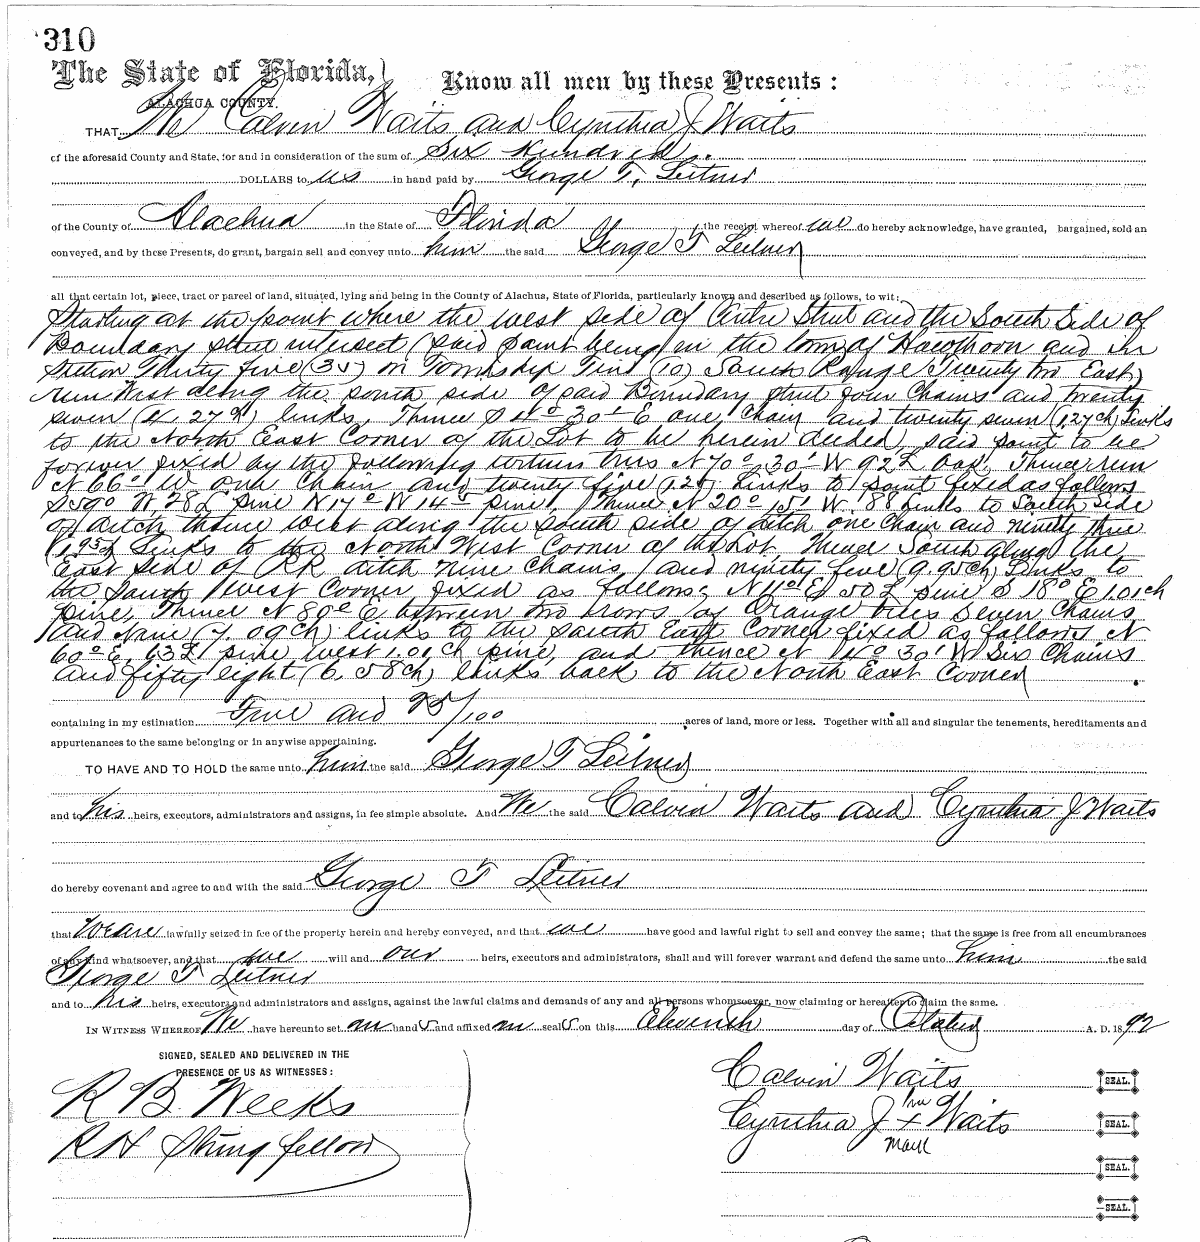 310
The State of Florida,
ALACHUA COUNTY.
Know all men by these Presents:
THAT We Calvin Waits and Cynthia J Waits
of the aforesaid County and State, for and in consideration of the sum of Six Hundred
DOLLARS to us in hand paid by George T. Leitner
of the County of Alachua in the State of Florida the receipt whereof we do hereby acknowledge, have granted, bargained, sold an
conveyed, and by these Presents, do grant, bargain sell and convey unto him the said George T Leitner
all that certain lot, piece, tract or parcel of land, situated, lying and being in the County of Alachua, State of Florida, particularly known and described as follows, to wit:
Starting at the point where the west side of Centre Street and the South Side of
Boundary street intersect (said point being in the town of Hawthorn and in
Section Thirty five (35) on Township Tenn (10) South Range Twenty two East)
run West along the south side of said Boundary street four Chains and twenty
seven (4.27ch) links, Thence S 14° 30' E one chain and twenty seven (1,27ch) Links
to the North East Corner of the Lot to be herein deeded, said point to be
forever fixed by the following witness trees N 70° 30' W 92L oak, Thence run
N 66° W one Chain and twenty five (1.25) Links to point fixed as follows
S 59° W 28L pine N 17° W 14 pine, Thence N 20° 15' W .88 Links to South Side
of ditch thence West along the south side of ditch one Chain and ninety three
Links to the North West Corner of the Lot. Thence South along the
East side of RR ditch nine Chains and ninety five (9.95ch) Links to
the South West Corner fixed as follows, E 50L pine S 18° E 1.01ch
pine, Thence N 80° E between two rows of Orange trees Seven Chains
and Nine (7.09ch) links to the South East Corner fixed as follows N
60° E, 63L pine west 1.01ch pine, and thence N 14° 30' W Six Chains
and fifty eight (6.58ch) links back to the North East Corner
containing in my estimation Five and 95/100 acres of land, more or less. Together with all and singular the tenements, hereditaments and
appurtenances to the same belonging or in anywise appertaining.
TO HAVE AND TO HOLD the same unto him the said George T Leitner
and to his heirs, executors, administrators and assigns, in fee simple absolute. And We the said Calvin Waits and Cynthia J Waits
do hereby covenant and agree to and with the said George T Leitner
that we are lawfully seized in fee of the property herein and hereby conveyed, and that we have good and lawful right to sell and convey the same; that the same is free from all encumbrances
of any kind whatsoever, and that we will and our heirs, executors and administrators, shall and will forever warrant and defend the same unto him the said
George T Leitner
and to his heirs, executors and administrators and assigns, against the lawful claims and demands of any and all persons whomsoever, now claiming or hereafter to claim the same.
IN WITNESS WHEREOF We have hereunto set our hands and affixed our seals on this Eleventh day of October A. D. 1892
SIGNED, SEALED AND DELIVERED IN THE
PRESENCE OF US AS WITNESSES:
R B Weeks
R H Stringfellow
Calvin Waits SEAL.
her
Cynthia J x Waits SEAL.
mark
SEAL.
SEAL.